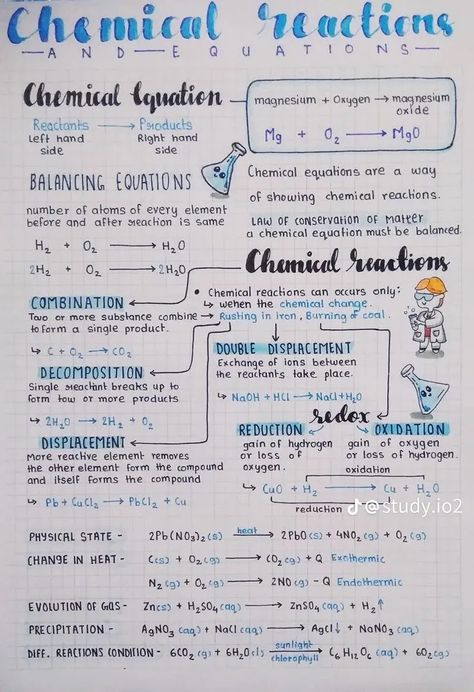 Chemical reactions
AND EQUATIONS
Chemical Equation
Reactants → Products
Left hand side
Right hand side
magnesium + Oxygen → magnesium oxide
Mg + O₂ → MgO
BALANCING EQUATIONS
number of atoms of every element
before and after reaction is same
H₂ + O₂ → H₂O
2H₂ + O₂ → 2H₂O
Chemical equations are a way
of showing chemical reactions.
LAW OF CONSERVATION OF MATTER
a chemical equation must be balanced.
Chemical reactions
• Chemical reactions can occurs only:
↳ wehen the chemical change.
↳ Rusting in iron, Burning of coal.
COMBINATION
Two or more substance combine
to form a single product.
↳ C + O₂ → CO₂
DECOMPOSITION
Single reactant breaks up to
form tow or more products
↳ 2H₂O → 2H₂ + O₂
DISPLACEMENT
More reactive element removes
the other element form the compound
and itself forms the compound
↳ Pb + CuCl₂ → PbCl₂ + Cu
DOUBLE DISPLACEMENT
Exchange of ions between
the reactants take place.
↳ NaOH + HCl → NaCl + H₂O
redox
REDUCTION
gain of hydrogen
or loss of
oxygen.
OXIDATION
gain of oxygen
or loss of hydrogen.
oxidation
↳ CuO + H₂ → Cu + H₂O
reduction
@study.io2
PHYSICAL STATE - 2Pb(NO₃)₂(s) heat → 2PbO(s) + 4NO₂(g) + O₂(g)
CHANGE IN HEAT - C(s) + O₂(g) → CO₂(g) + Q Exothermic
N₂(g) + O₂(g) → 2NO(g) - Q Endothermic
EVOLUTION OF GAS - Zn(s) + H₂SO₄(aq) → ZnSO₄(aq) + H₂↑
PRECIPITATION - AgNO₃(aq) + NaCl(aq) → AgCl↓ + NaNO₃(aq)
DIFF. REACTIONS CONDITION - 6CO₂(g) + 6H₂O(l) sunlight chlorophyll → C₆H₁₂O₆(aq) + 6O₂(g)